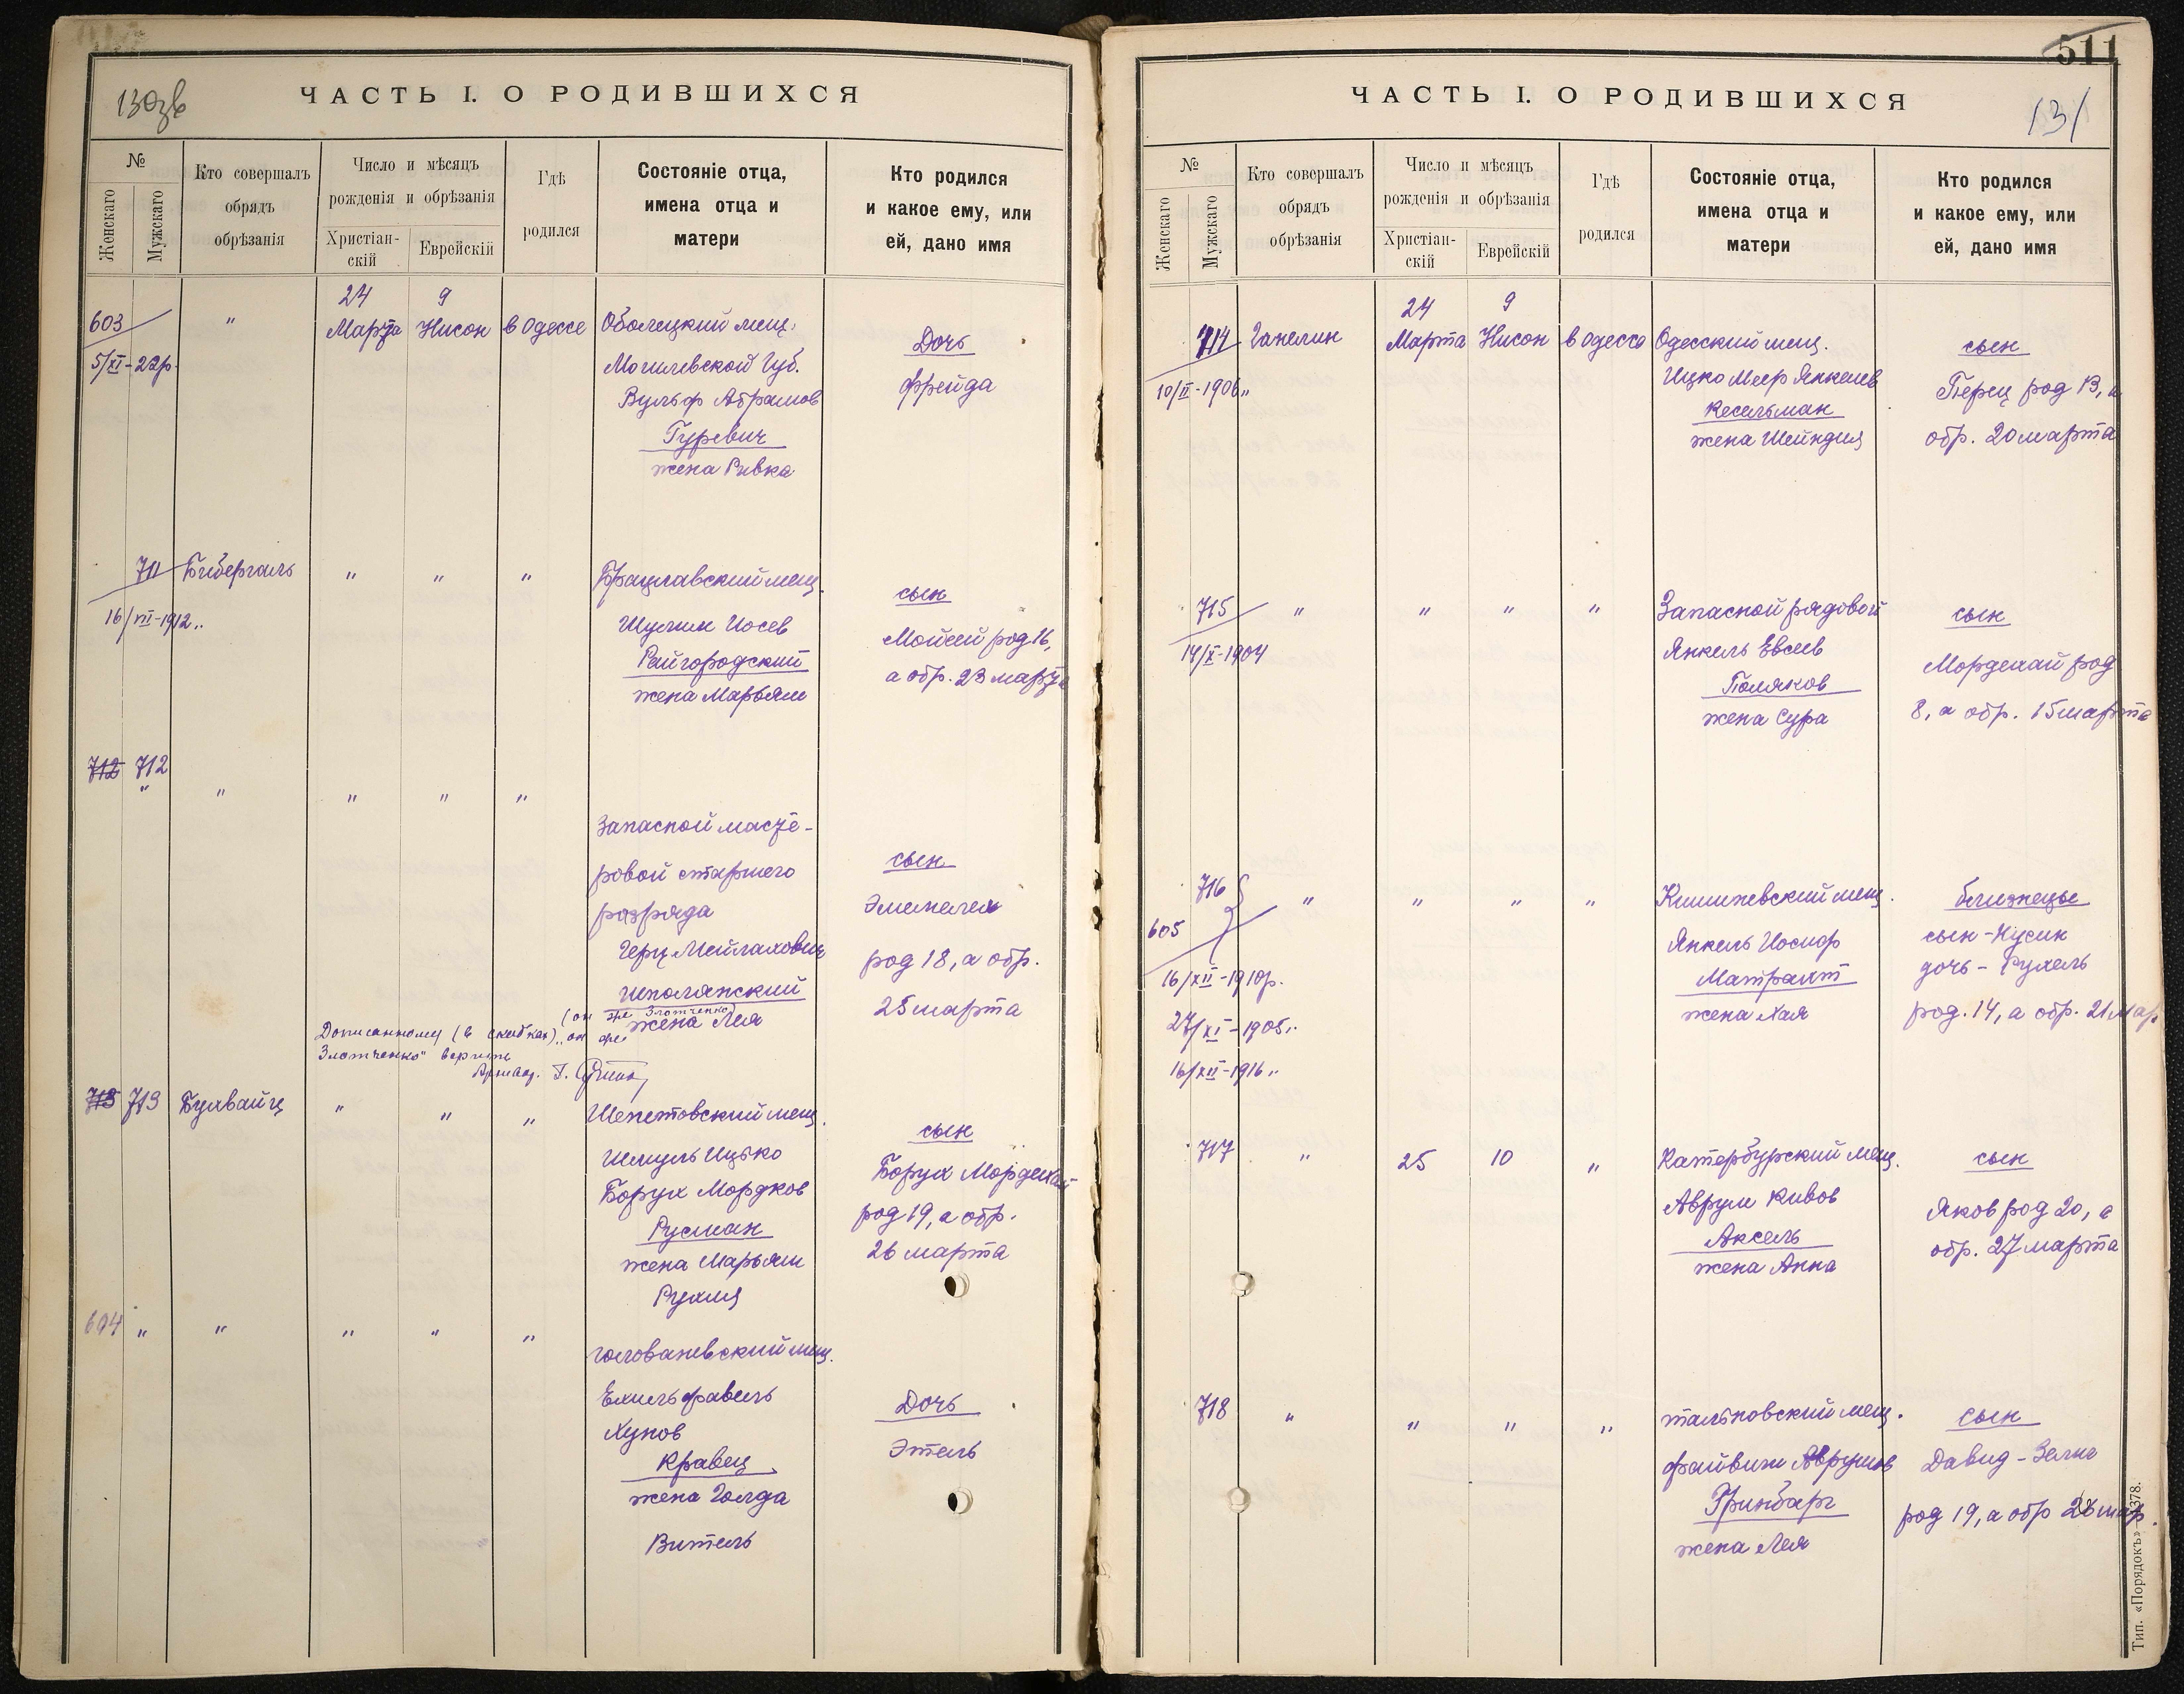 130зв
ЧАСТЬ I. О РОДИВШИХСЯ
№
Женскаго
Мужскаго
Кто совершалъ
обрядъ
обрѣзанія
Число и мѣсяцъ
рожденія и обрѣзанія
Христіан-
скій
Еврейскій
Гдѣ
родился
Состояніе отца,
имена отца и
матери
Кто родился
и какое ему, или
ей, дано имя
603
5/XI-22р.
"
24
Марта
9
Нисон
в Одессе
Оболецкий мещ.
Могилевской Губ.
Вульф Абрамов
Гуревич
жена Ривка
Дочь
Фрейда
711
16/VII-1912..
Бибергаль
" " "
Брацлавский мещ.
Шулим Иосев
Райгородский
жена Марьям
сын
Мойсей род 16,
а обр. 23 марта
712 712
" " " " "
Запасной масте-
ровой старшего
разряда
Герц Мейлахович
Шполянский
(он же Злотченко)
жена Лея
сын
Элимелех
род 18, а обр.
25 марта
Дописанному (в скобках) „он же
Злотченко" верить
Архивар. Г.
713 713
Бухвайц
" " "
Шепетовский мещ.
Шмуль Ицько
Борух Мордков
Русман
жена Марьям
Рухля
сын
Борух Мордехай
род 19, а обр.
26 марта
604
" " " " "
Голованевский мещ.
Ехиль Фавель
Хунов
Кравец
жена Голда
Витель
Дочь
Этель
511
131
ЧАСТЬ I. О РОДИВШИХСЯ
№
Женскаго
Мужскаго
Кто совершалъ
обрядъ
обрѣзанія
Число и мѣсяцъ
рожденія и обрѣзанія
Христіан-
скій
Еврейскій
Гдѣ
родился
Состояніе отца,
имена отца и
матери
Кто родился
и какое ему, или
ей, дано имя
714
10/II-1906..
Ганелин
24
Марта
9
Нисон
в Одессе
Одесский мещ.
Ицко Меер Янкелев
Кесельман
жена Шейндля
сын
Перец род 13, а
обр. 20 марта
715
14/X-1904
" " " "
Запасной рядовой
Янкель Евсеев
Поляков
жена Сура
сын
Мордехай род
8, а обр. 15 марта
716
605
16/XII-1910р.
27/XI-1905..
16/XII-1916..
" " " "
Кишиневский мещ.
Янкель Иосиор
Матракт
жена Хая
близнецы
сын - Нусин
дочь - Рухель
род. 14, а обр. 21 мар
717
"
25
10
"
Катербурский мещ.
Аврум Кивов
Аксель
жена Анна
сын
Яков род 20, а
обр. 27 марта
718
" " " "
Тальновский мещ.
Файвиш Аврумов
Гринбарг
жена Лея
сын
Давид-Зелиг
род 19, а обр 26 мар.
Тип. «Порядокъ» — 378.